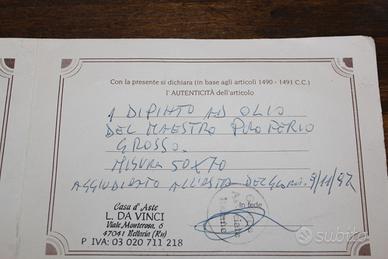 Con la presente si dichiara (in base agli articoli 1490 - 1491 C.C.)
l'AUTENTICITÀ dell'articolo
1 DIPINTO AD OLIO
DEL MAESTRO PROFERIO
GROSSO.
MISURA 50X70
AGGIUDICATO ALL'ASTA DEL GIORNO. 9/11/97
Casa d'Aste
L. DA VINCI
Viale Monterosa, 6
47041 Bellaria (Rn)
P IVA: 03 020 711 218
In fede
subito